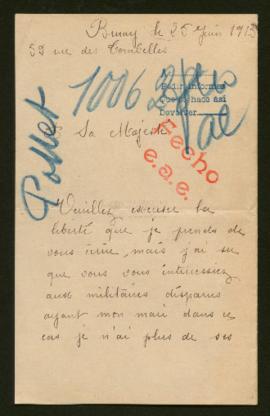 le 25 Juin 191
52 rue des Tombelles
Potter
1006
Pedir informes
hado así
Devolver
Sa Majesté
Fecho
e.a.e.
Veuillez excuser la
liberté que je prends de
vous écrire, mais j'ai su
que vous vous intéressiez
aux militaires disparus
ayant mon mari dans ce
cas je n'ai plus de ses